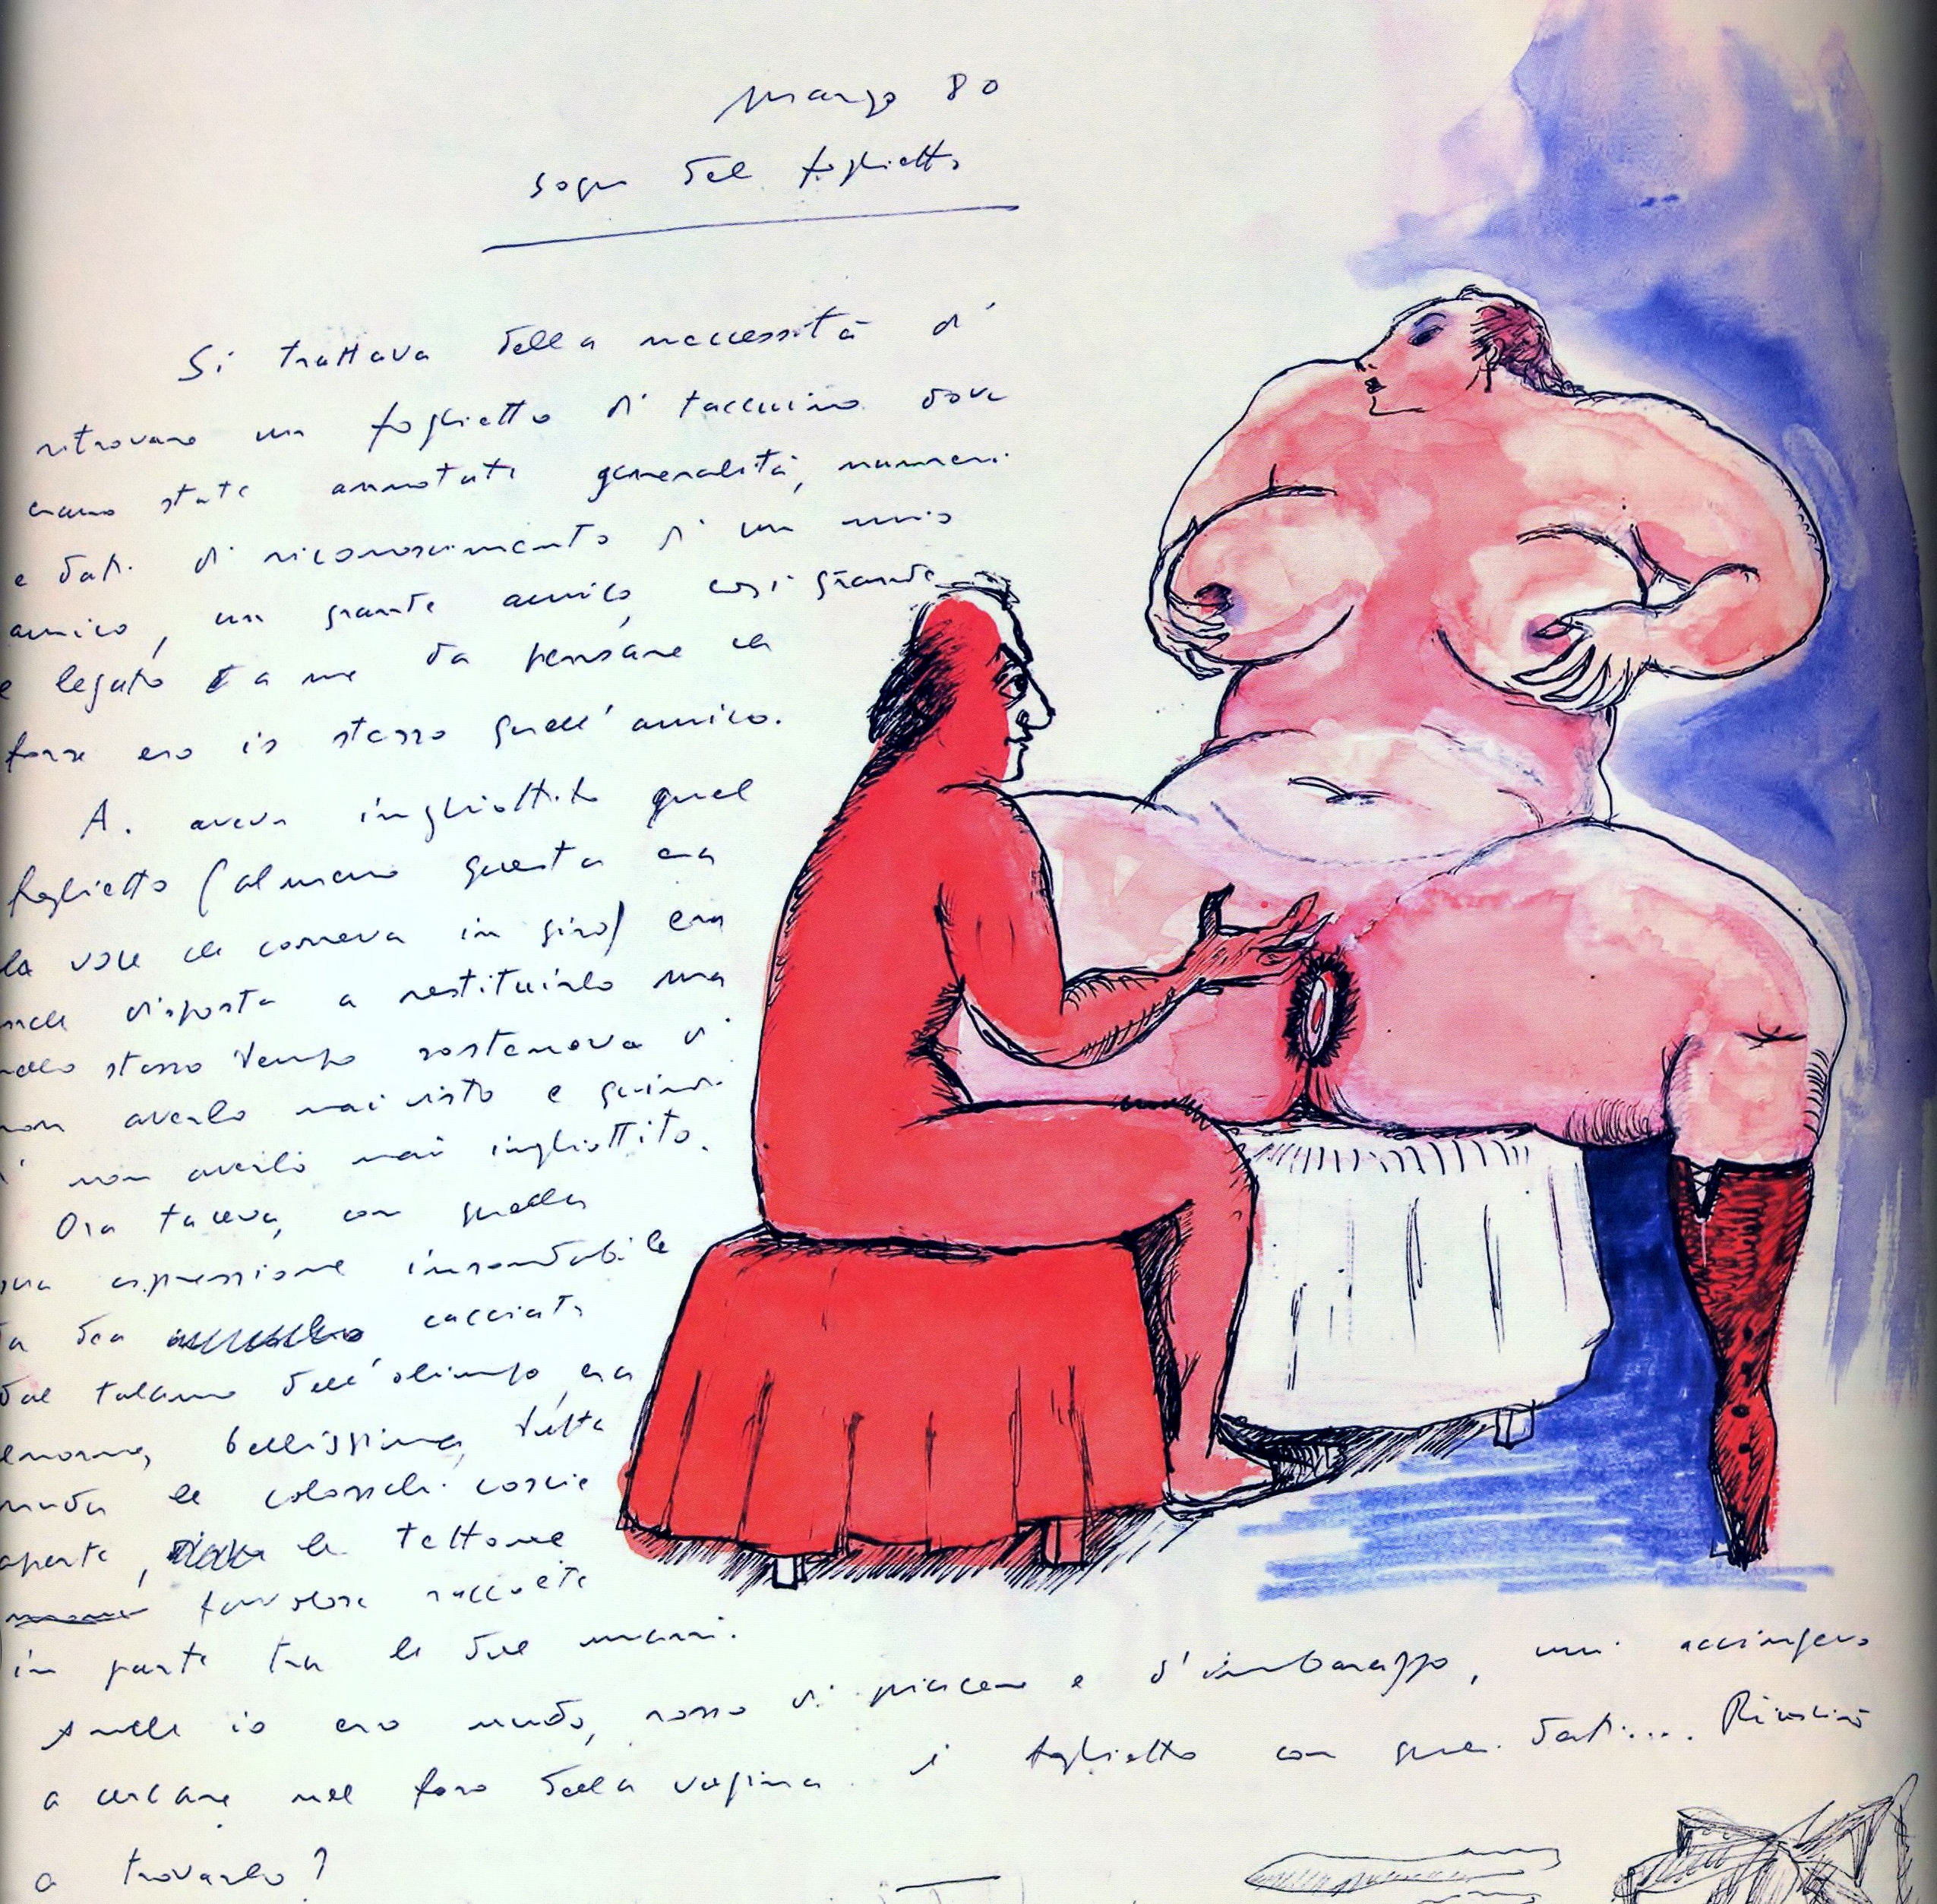 Marzo 80
sogno del foglietto
Si trattava della neccessità di
ritrovare un foglietto di taccuino dove
erano state annotate generalità, numeri
e dati di riconoscimento di un mio
amico, un grande amico, così grande
e legato a me da pensare che
forse ero io stesso quell'amico.
A. aveva inghiottito quel
foglietto (almeno questa era
la voce che correva in giro) era
anche disposta a restituirlo ma
nello stesso tempo sosteneva di
non averlo mai visto e quindi
di non averlo mai inghiottito.
Ora taceva, con quella
sua espressione insondabile
da dea cacciata
dal talamo dell'olimpo, era
enorme, bellissima, tutta
nuda le colossali coscie
aperte, le tettone
favolose raccolte
in parte tra le due mani.
Anche io ero nudo, rosso di piacere e d'imbarazzo, mi accingevo
a cercare nel foro della vagina il foglietto con quei dati.... Riuscirò
a trovarlo?